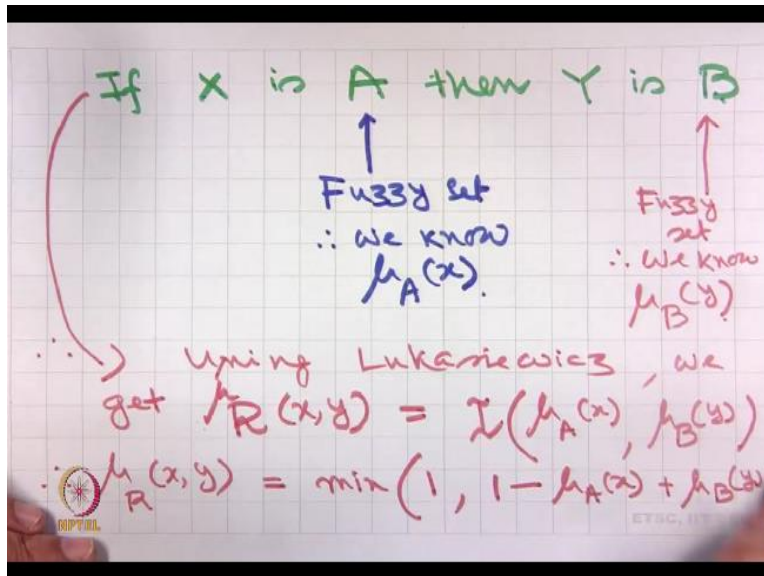 If X is A then Y is B
Fuzzy set
∴ we know
μ_A(x).
Fuzzy
set
∴ we know
μ_B(y).
∴ Using Lukasiewicz, we
get μ_R(x,y) = I(μ_A(x), μ_B(y))
∴ μ_R(x,y) = min(1, 1 - μ_A(x) + μ_B(y)
NPTEL
ETSC, IIT